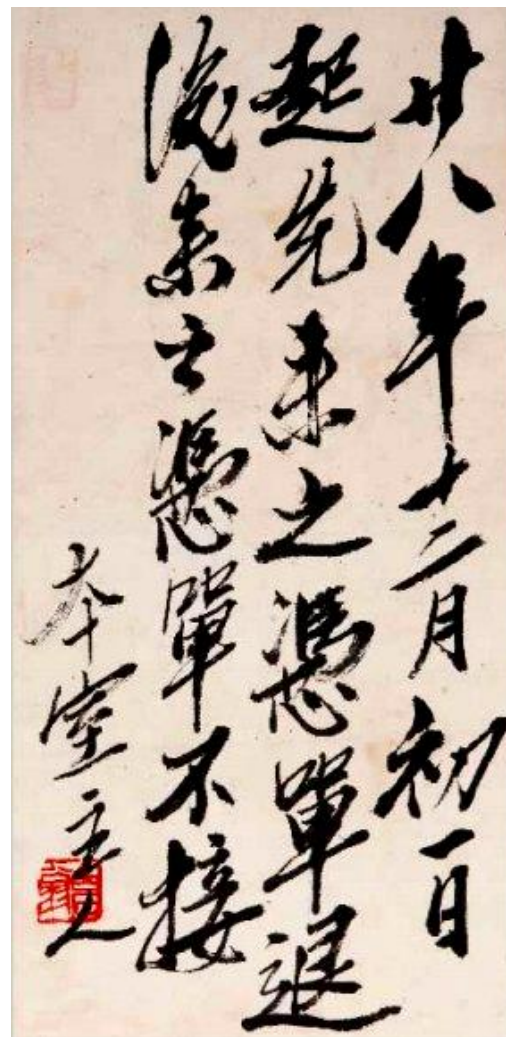 廿八年十二月初一日
起先来之憑單退
後来之憑單不接
本室主人